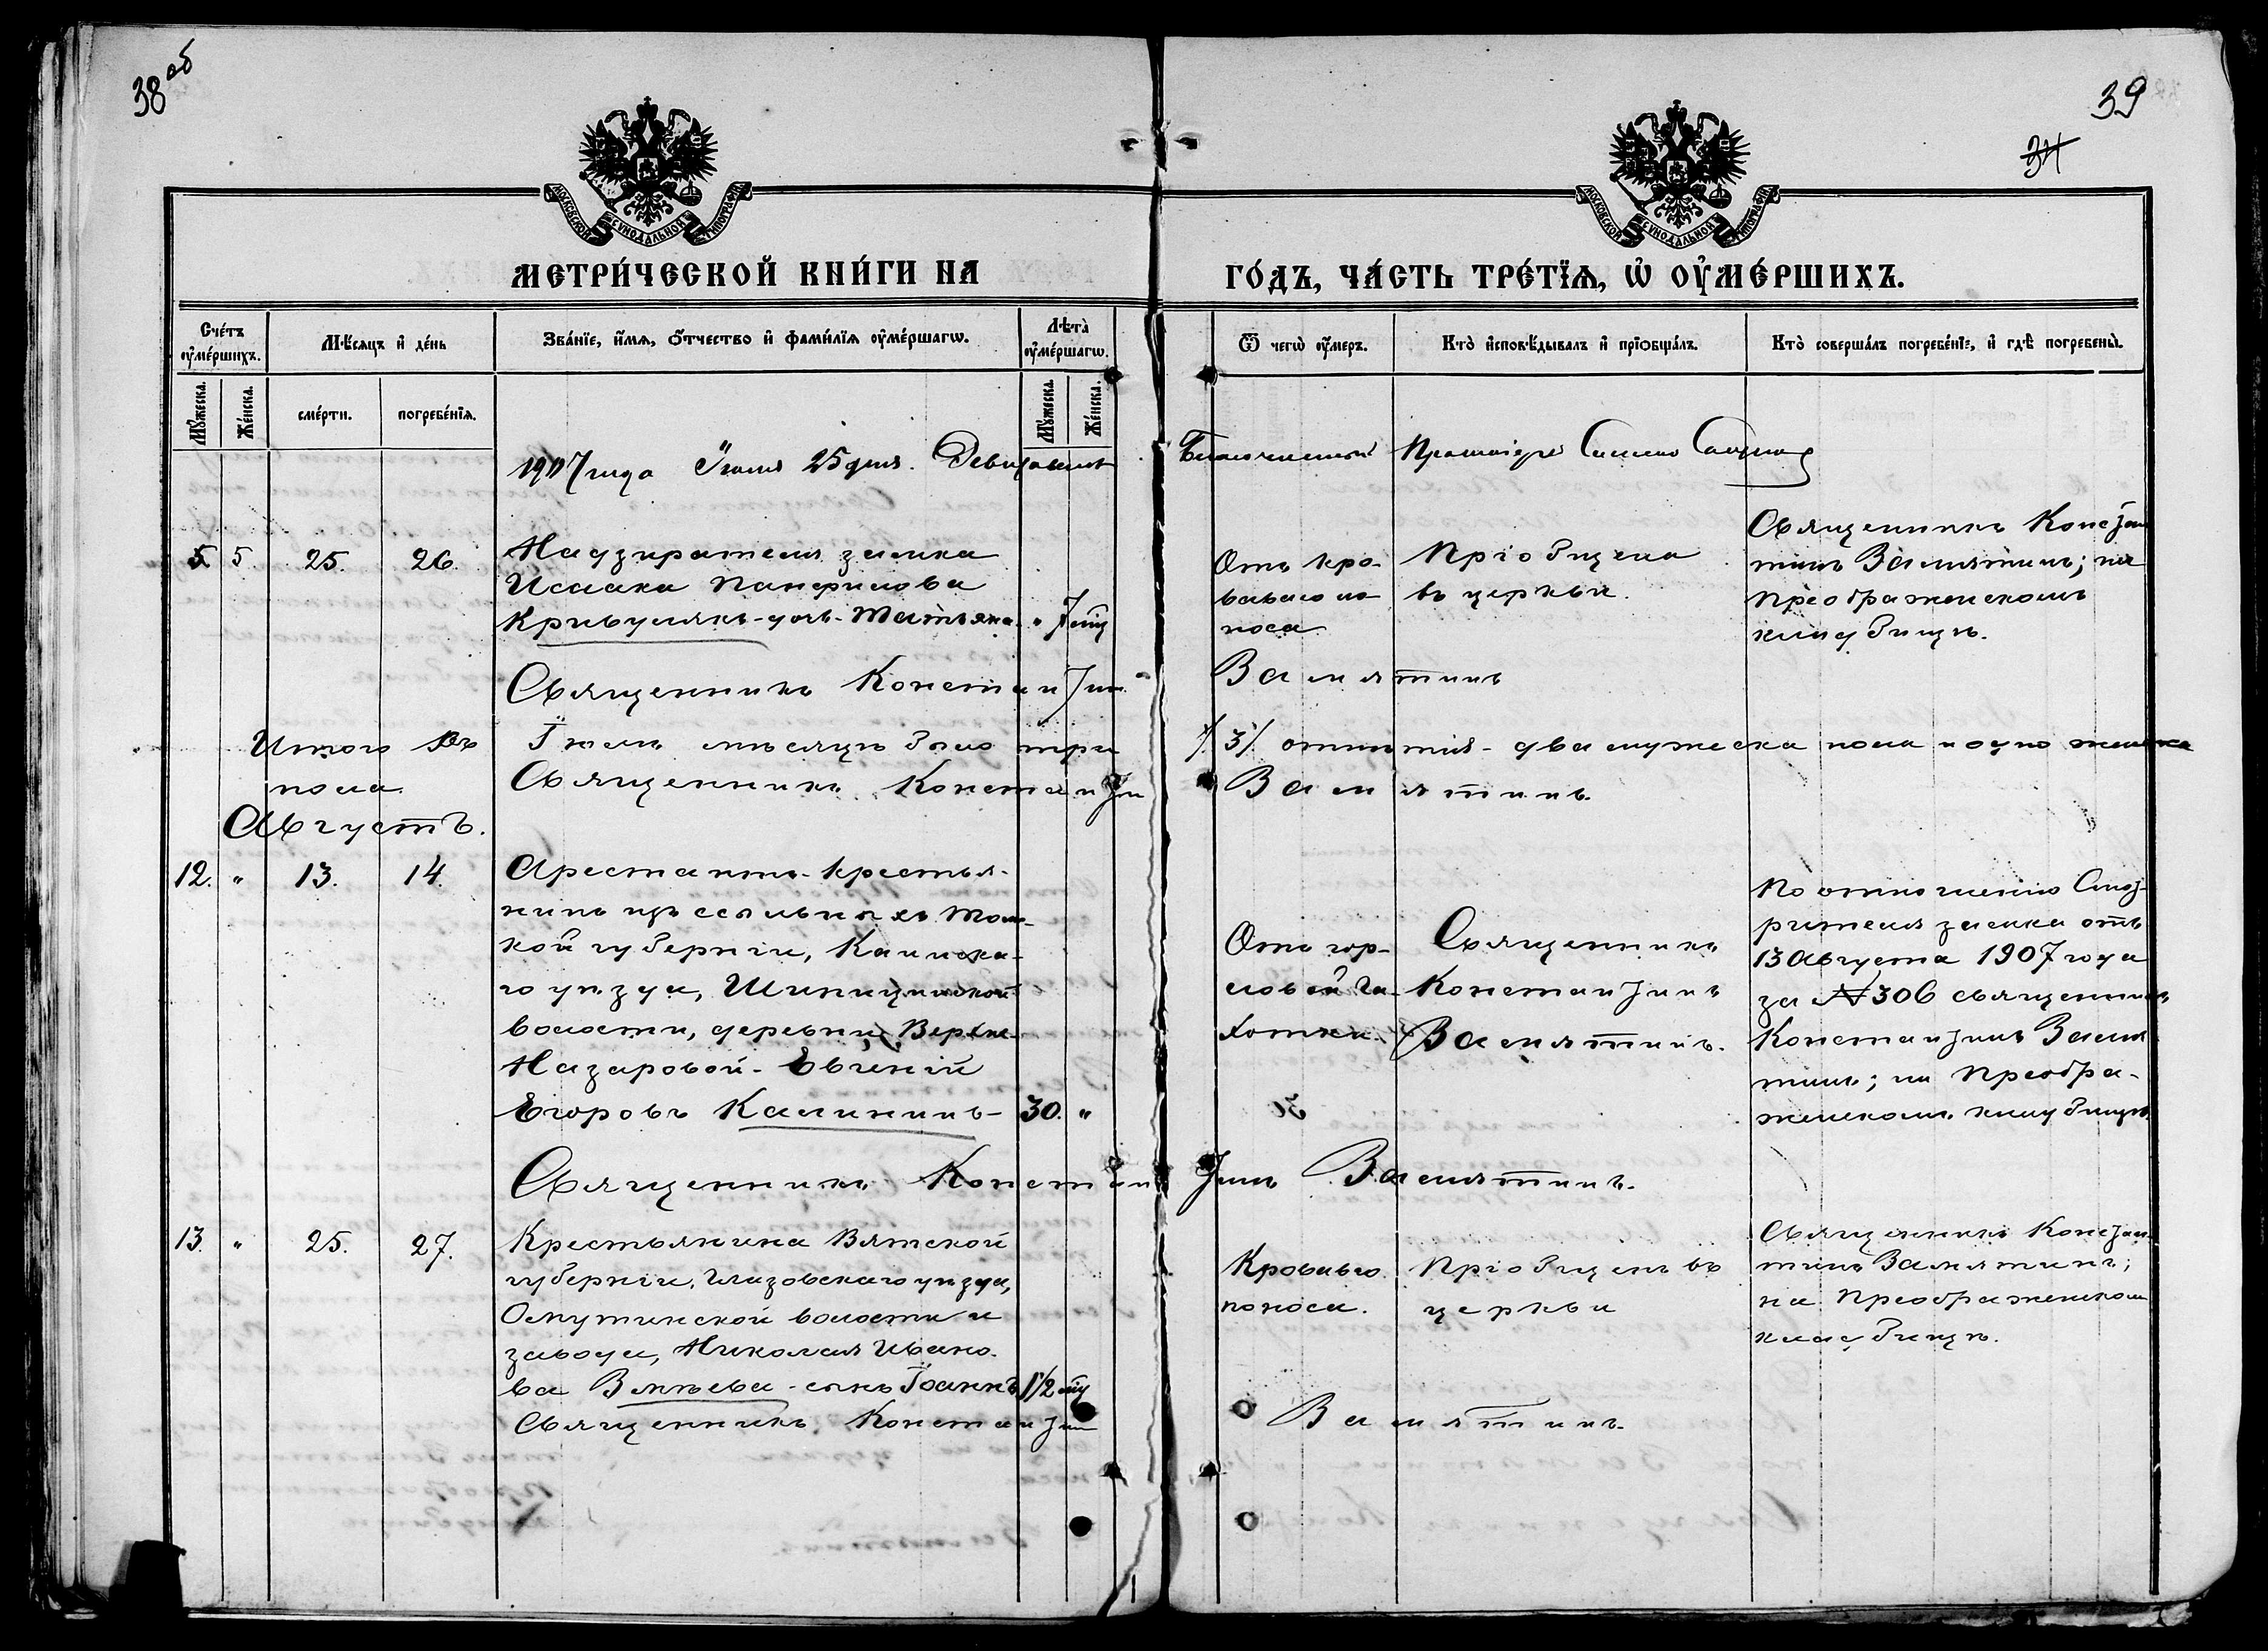 38 об
39
34
МОСКОВСКОЙ СѴНОДАЛЬНОЙ ТИПОГРАФІИ
МОСКОВСКОЙ СѴНОДАЛЬНОЙ ТИПОГРАФІИ
МЕТРИ́ЧЕСКОЙ КНИ́ГИ НА
ГО́ДЪ, ЧА́СТЬ ТРЕ́ТЇѦ, Ѡ҆ ОУ҆МЕ́РШИХЪ.
Сче́тъ оу҆ме́ршихъ.
Мѣ́сяцъ и҆ де́нь
Зва́нїе, и҆́мѧ, ѻ҆́тчество и҆ фами́лїѧ оу҆ме́ршагѡ.
Лѣта̀ оу҆ме́ршагѡ.
Ѿ чегѡ̀ оу҆́меръ.
Кто̀ и҆сповѣ́дывалъ и҆ прїѻбща́лъ.
Кто̀ соверша́лъ погребе́нїе, и҆ гдѣ̀ погребены̀.
Мꙋ́жеска.
Же́нска.
сме́рти.
погребе́нїѧ.
Мꙋ́жеска.
Же́нска.
1907 года Іюля 25 дня.
Благочинный Протоіерей
5 5. 25. 26.
Надзирателя замка
Исаака Панфилова
Кривуляк- дочь- Татьяна. " 7 мц
Отъ кро-
ваваго по-
носа.
Пріобщена
въ церкви.
Священникъ Констан
тинъ Замятинъ; на
Преображенскомъ
кладбищѣ.
Священникъ Константинъ Замятинъ
Итого въ Іюлѣ мѣсяцѣ было три /3/ отпѣтія- два мужеска пола и одно женска
пола.
Священникъ Константинъ Замятинъ.
Августъ.
12. " 13. 14.
Арестантъ- крестья-
нинъ изъ ссыльныхъ Томс-
кой губерніи, Каинска-
го уѣзда, Шипицинской
волости, деревни Верхне-
Назаровой- Евгеній
Егоровъ Калининъ- 30. "
Отъ гор-
ловой ча-
хотки.
Священникъ
Константинъ
Замятинъ.
По отношенію Смот-
рителя замка отъ
13 Августа 1907 года
за № 306 священникъ
Константинъ Замя
тинъ; на Преобра-
женскомъ кладбищѣ
Священникъ Константинъ Замятинъ.
13. " 25. 27.
Крестьянина Вятской
губерніи, Глазовскаго уѣзда,
Омутинской волости и
завода, Николая Ивано-
ва Змѣева- сынъ Іоаннъ 1 1/2 мц
Кроваваго
поноса.
Пріобщенъ въ
церкви
Священникъ Констан
тинъ Замятинъ;
на Преображенском
кладбищѣ.
Священникъ Константинъ Замятинъ.